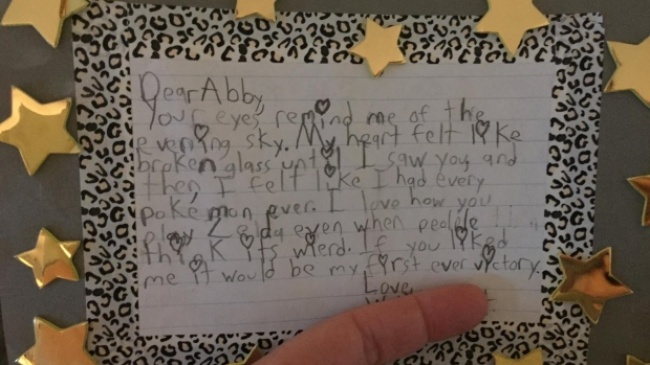 Dear Abby,
Your eyes remind me of the
evening sky. My heart felt like
broken glass until I saw you and
then I felt like I had every
pokemon ever. I love how you
play Zelda even when people
think it's wierd. If you liked
me it would be my first ever victory.
Love,